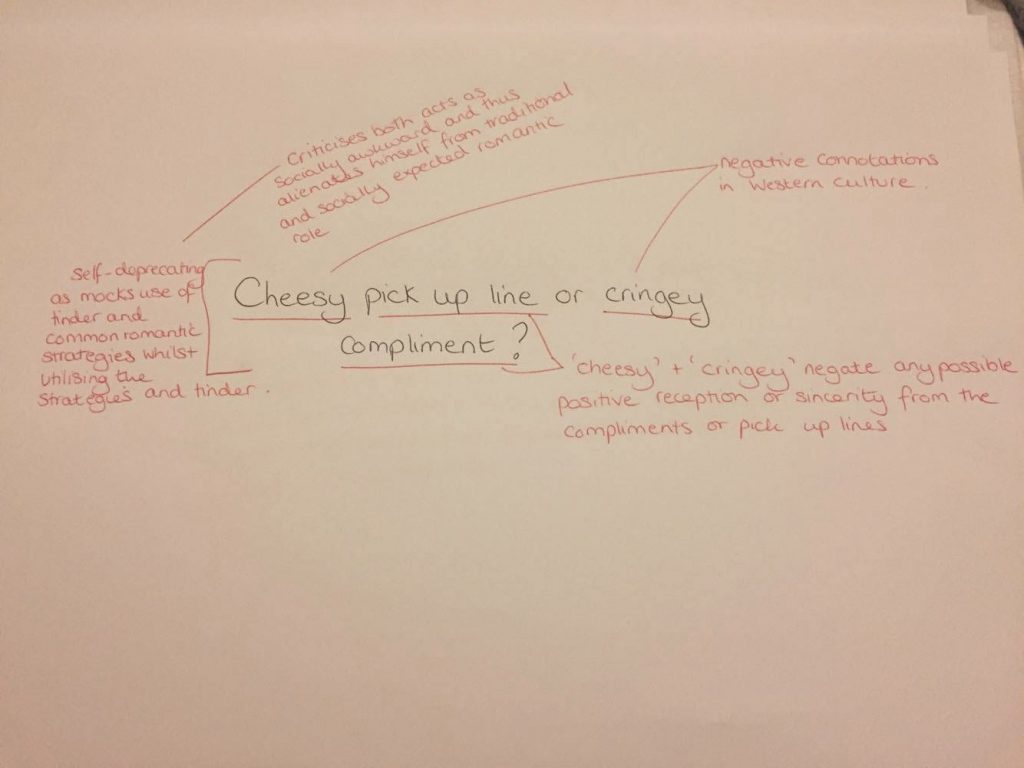 Criticises both acts as
socially awkward and thus
alienates himself from traditional
and socially expected romantic
role
negative connotations
in Western culture.
Self-deprecating
as mocks use of
tinder and
common romantic
strategies whilst
utilising the
strategies and tinder.
Cheesy pick up line or cringey
compliment?
'cheesy' + 'cringey' negate any possible
positive reception or sincerity from the
compliments or pick up lines